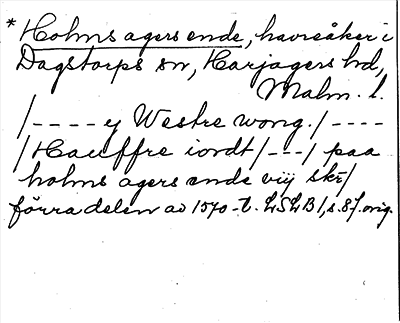 * Holms agers ende, havreåker i
Dagstorps sn, Harjagers hd,
Malm. l.
/---- y Westre wong. /----
/Hauffre iordt /---/ paa
holms agers ende viij skr/
förra delen av 1570-t. LSLB 1, s. 87. orig.